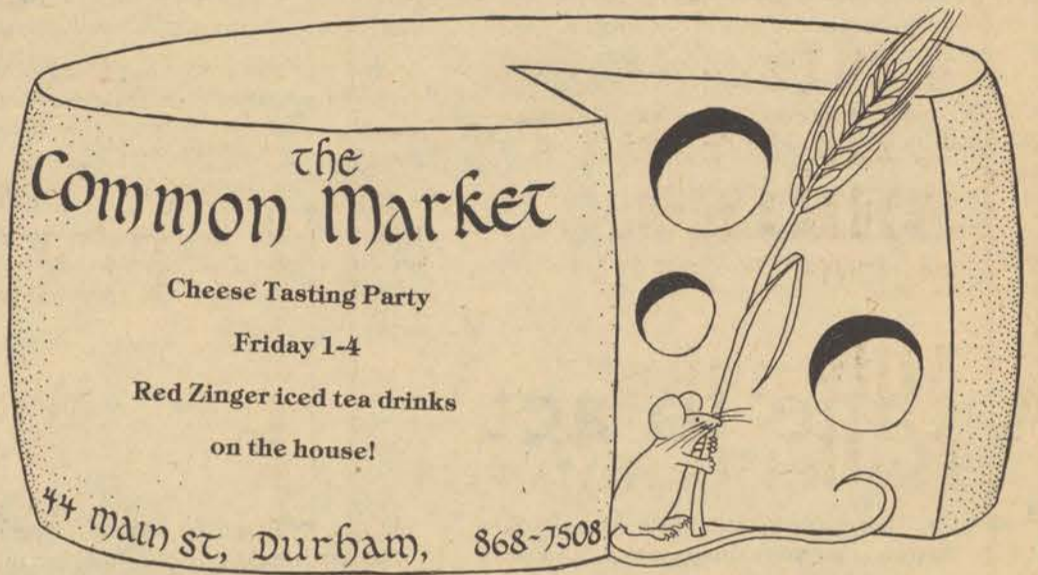 the
Common Market
Cheese Tasting Party
Friday 1-4
Red Zinger iced tea drinks
on the house!
44 Main St, Durham, 868-7508